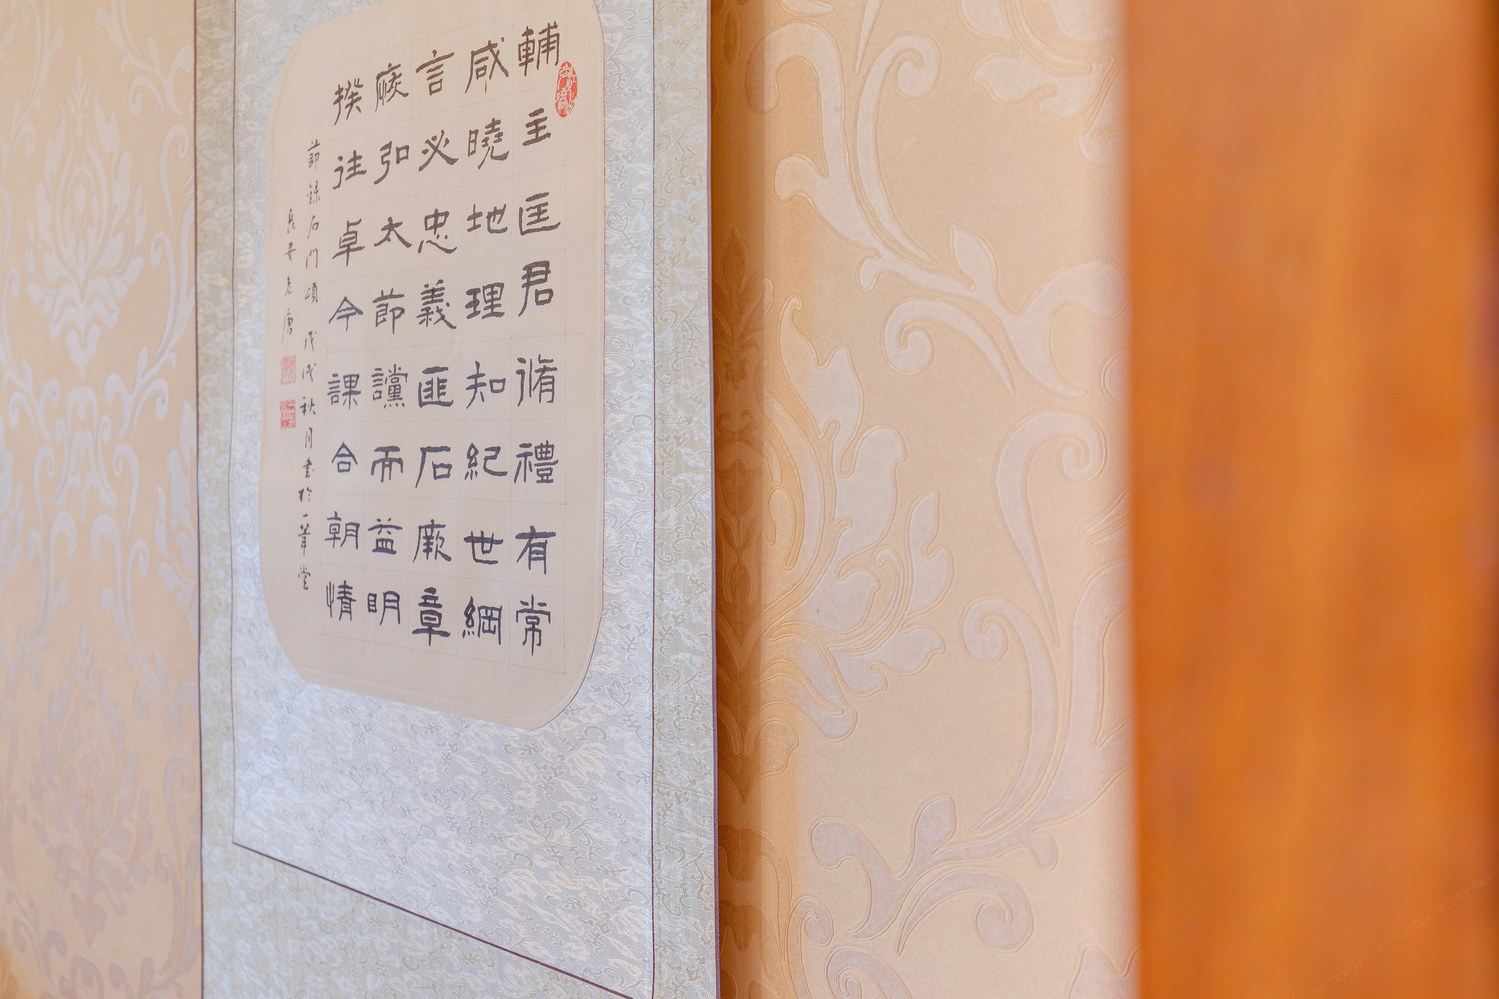 輔主匡君脩禮有常
咸曉地理知紀世綱
言必忠義匪石厥章
庶弘大節讜而益明
揆往卓今謀合朝情
節錄石門頌戊戌秋月書於一葦堂
長安老唐